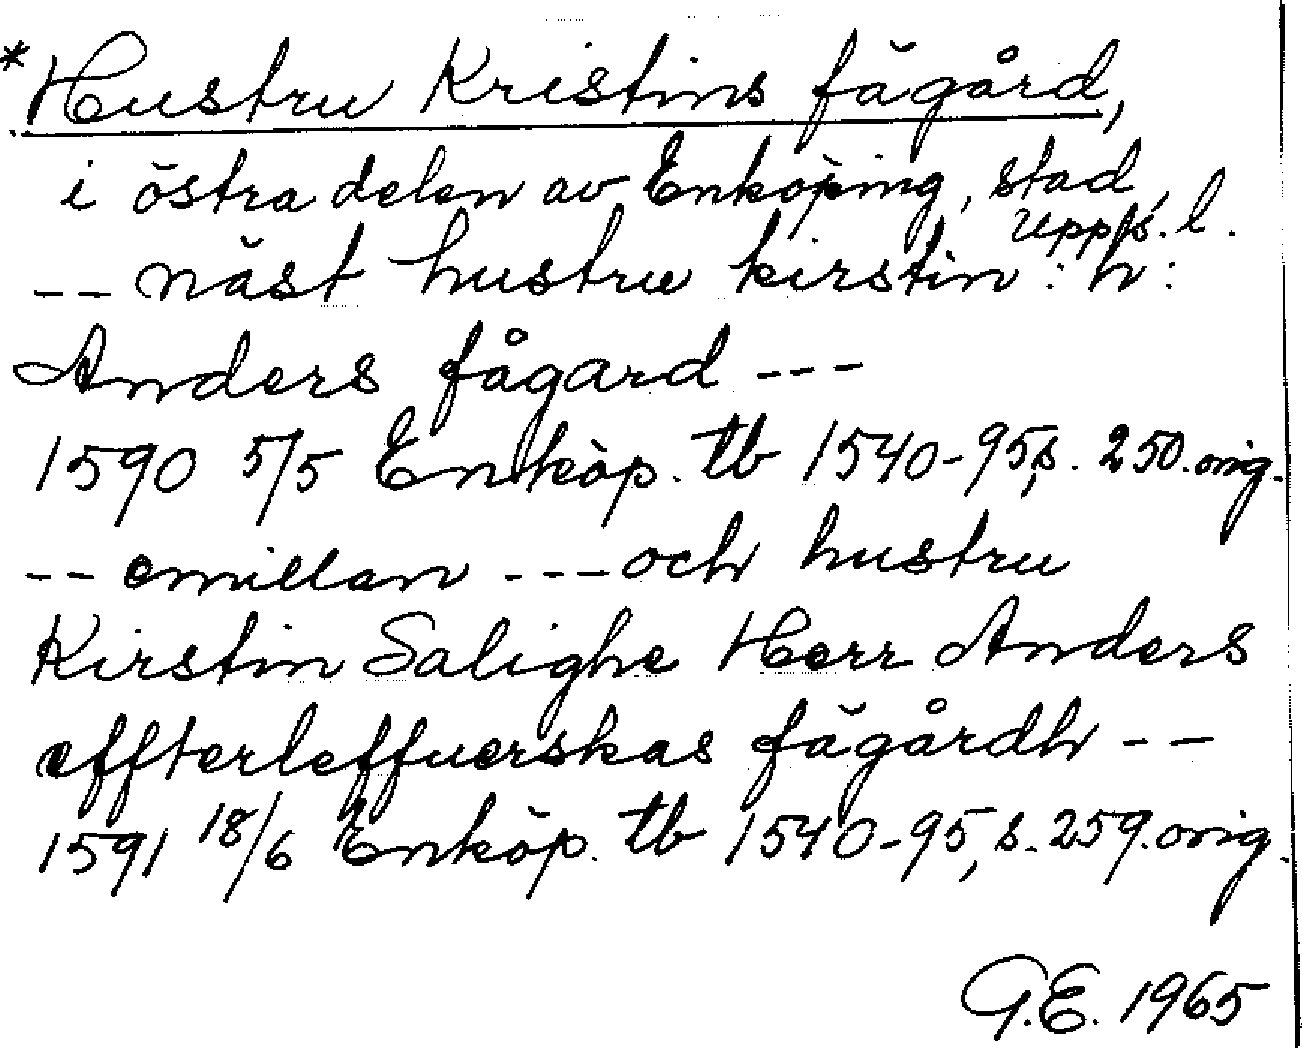 *Hustru Kristins fägård,
i östra delen av Enköping, stad,
Upps. l.
-- näst hustru kirstin : h :
Anders fågard ---
1590 5/5 Enköp. tb 1540-95, s. 250. orig.
-- emillan --- och hustru
Kirstin Salighe Herr Anders
effterleffuerskas fägårdh --
1591 18/6 Enköp. tb 1540-95, s. 259. orig.
G.E. 1965